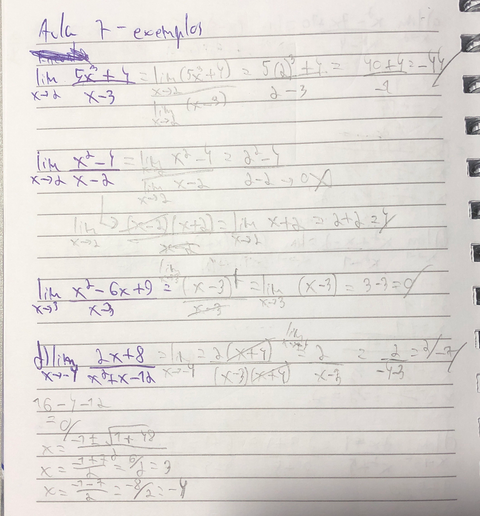 Aula 7 - exemplos
lim x→2 5x³+4 / x-3 = lim x→2 (5x³+4) / lim x→2 (x-3) = 5(2)³+4 / 2-3 = 40+4 / -1 = -44
lim x→2 x²-4 / x-2 = lim x²-4 / lim x-2 = 2²-4 / 2-2 → 0
lim x→2 (x-2)(x+2) / x-2 = lim x→2 x+2 = 2+2 = 4
lim x→3 x²-6x+9 / x-3 = lim x→3 (x-3)² / x-3 = lim x→3 (x-3) = 3-3 = 0
d) lim x→-4 2x+8 / x²+x-12 = lim x→-4 2(x+4) / (x-3)(x+4) = lim 2 / x-3 = 2 / -4-3 = 2/-7
16-4-12
= 0
x = -1 ± √1+48
x = -1+7 / 2 = 6/2 = 3
x = -1-7 / 2 = -8/2 = -4